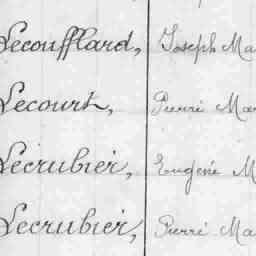 Lecoufflard, Joseph Ma
Lecourt, Pierré Mar
Lécrubiér, Eugéné M
Lecrubiér, Pierré Ma